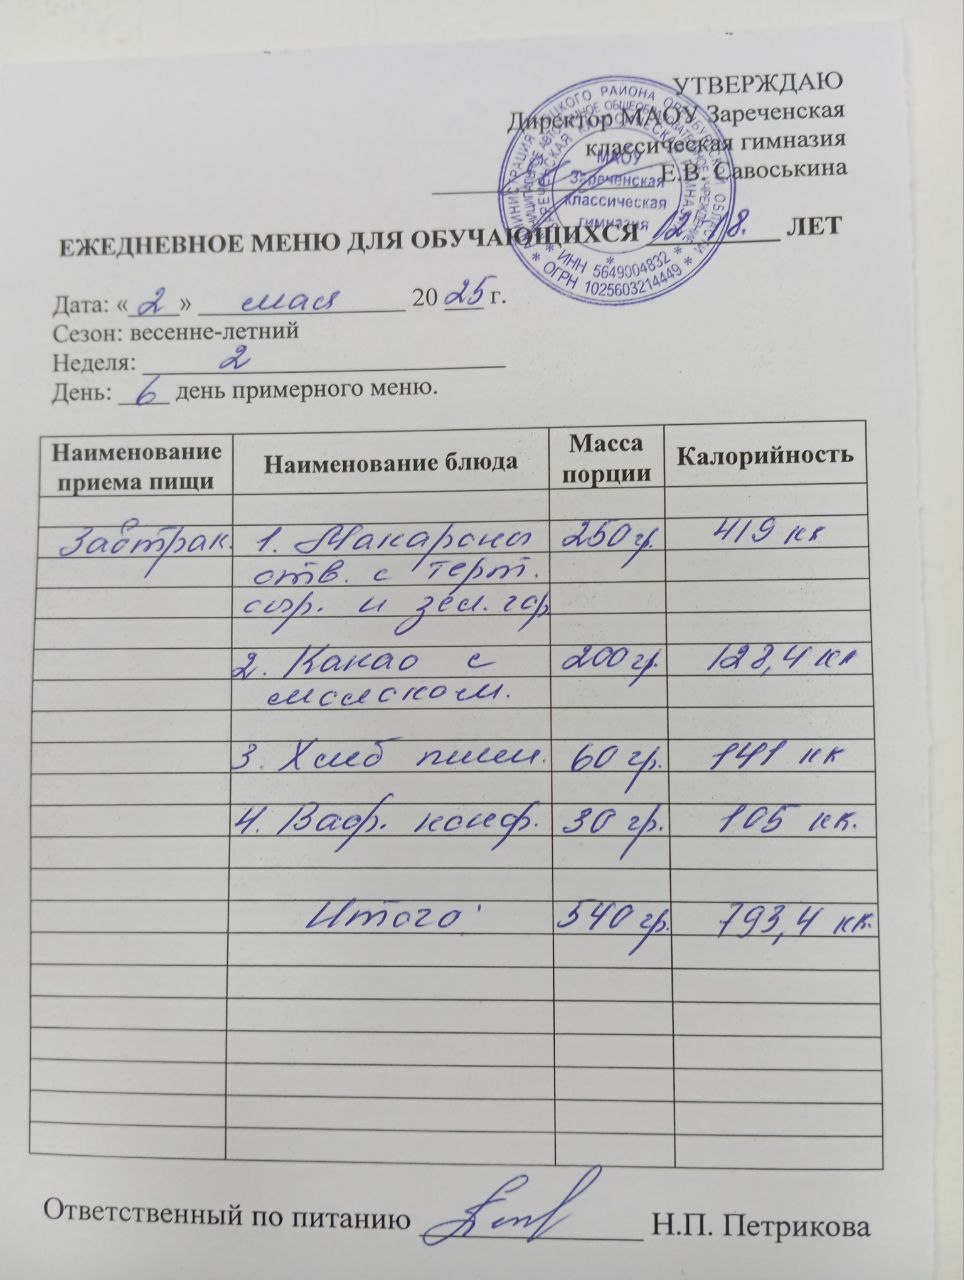 УТВЕРЖДАЮ
Директор МАОУ Зареченская
классическая гимназия
Е.В. Савоськина
МАОУ
Зареченская
классическая
гимназия
* ИНН 5649004832 *
* ОГРН 1025603214449 *
ЕЖЕДНЕВНОЕ МЕНЮ ДЛЯ ОБУЧАЮЩИХСЯ 12-18. ЛЕТ
Дата: «2» мая 2025 г.
Сезон: весенне-летний
Неделя: 2
День: 6 день примерного меню.
Наименование приема пищи Наименование блюда Масса порции Калорийность
Завтрак. 1. Макароны 250 гр. 419 кк
отв. с терт.
сыр. и зел. гор
2. Какао с 200 гр. 128,4 кк
молоком.
3. Хлеб пшен. 60 гр. 141 кк
4. Ваф. конф. 30 гр. 105 кк.
Итого: 540 гр. 793,4 кк.
Ответственный по питанию Н.П. Петрикова